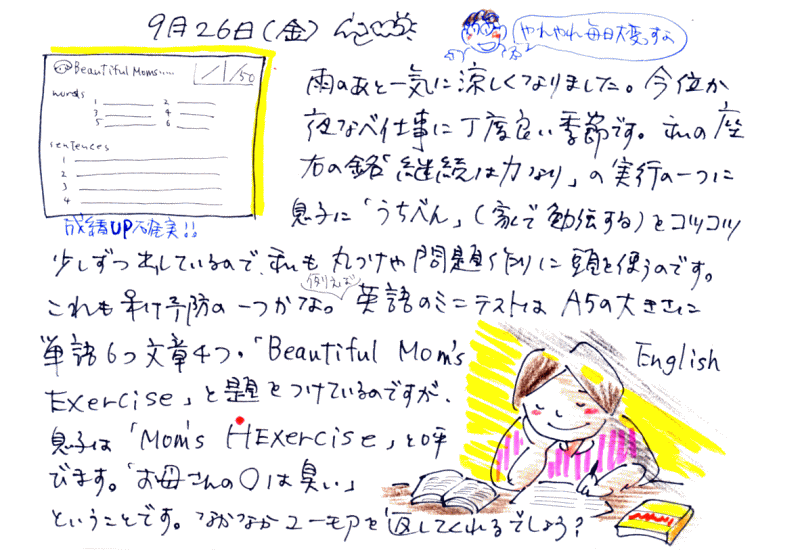 9月26日(金)
やれやれ毎日大変っすよ
Beautiful Moms.....
/50
words
1 2
3 4
5 6
sentences
1
2
3
4
成績UP確実!!
雨のあと一気に涼しくなりました。今位が
夜なべ仕事に丁度良い季節です。私の座
右の銘「継続は力なり」の実行の一つに
息子に「うちべん」(家で勉強する)とコツコツ
少しずつ出しているので、私も丸つけや問題作りに頭を使うのです。
これも呆け予防の一つかな。例えば英語のミニテストは A5の大きさに
単語6つ文章4つ・「Beautiful Mom's
Exercise」と題をつけているのですが、
息子は「Mom's HExercise」と呼
びます。「お母さんの〇は臭い」
ということです。なかなかユーモアを返してくれるでしょう?
English